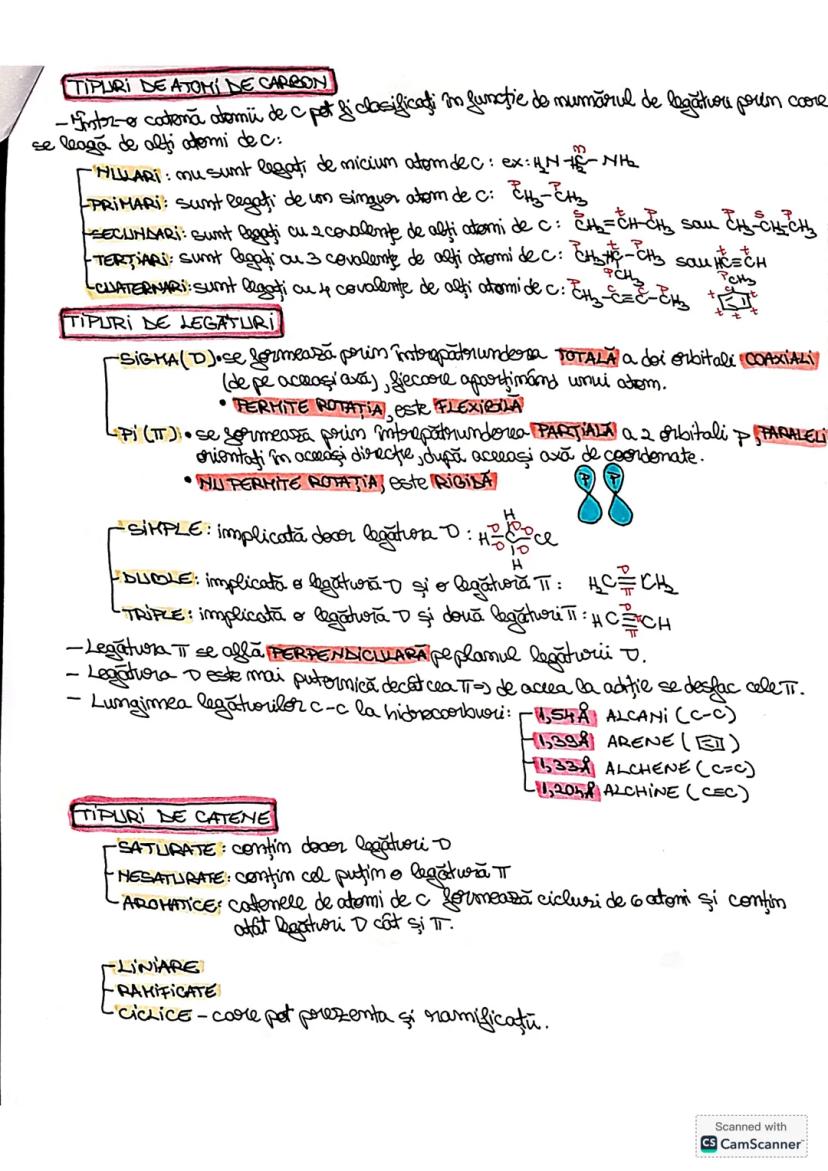 TIPURI DE ATOMI DE CARBON
- Într-o catenă atomii de C pot fi clasificați în funcție de numărul de legături prin care
se leagă de alți atomi de C:
NULARI: nu sunt legați de niciun atom de C: ex: H₂N - C - NH₂
PRIMARI: sunt legați de un singur atom de C: CH₃-CH₃
SECUNDARI: sunt legați cu 2 covalențe de alți atomi de C: CH₂=CH-CH₃ sau CH₃-CH₂-CH₃
TERȚIARI: sunt legați cu 3 covalențe de alți atomi de C: CH₃-HC-CH₃ sau HC≡CH
CH₃ CH₃
CUATERNARI: sunt legați cu 4 covalențe de alți atomi de C: CH₃-C≡C-CH₃
TIPURI DE LEGĂTURI
SIGMA (σ) • se formează prin întrepătrunderea TOTALĂ a doi orbitali COAXIALI
(de pe aceeași axă), fiecare aparținând unui atom.
• PERMITE ROTAȚIA, este FLEXIBILĂ
Pi (π) • se formează prin întrepătrunderea PARȚIALĂ a 2 orbitali p, PARALELI
orientați în aceeași direcție, după aceeași axă de coordonate.
• NU PERMITE ROTAȚIA, este RIGIDĂ
P P
H
SIMPLE: implicată doar legătura σ: H-C-Cl
H
DUBLE: implicată o legătură σ și o legătură π: H₂C=CH₂
TRIPLE: implicată o legătură σ și două legături π: HC≡CH
- Legătura π se află PERPENDICULARĂ pe planul legăturii σ.
- Legătura σ este mai puternică decât cea π => de aceea la adiție se desfac cele π.
- Lungimea legăturilor C-C la hidrocarburi: 1,54Å ALCANI (C-C)
1,39Å ARENE ( )
1,33Å ALCHENE (C=C)
1,204Å ALCHINE (C≡C)
TIPURI DE CATENE
SATURATE: conțin doar legături σ
NESATURATE: conțin cel puțin o legătură π
AROMATICE: catenele de atomi de C formează cicluri de 6 atomi și conțin
atât legături σ cât și π.
LINIARE
RAMIFICATE
CICLICE - care pot prezenta și ramificații.
Scanned with
CS CamScanner